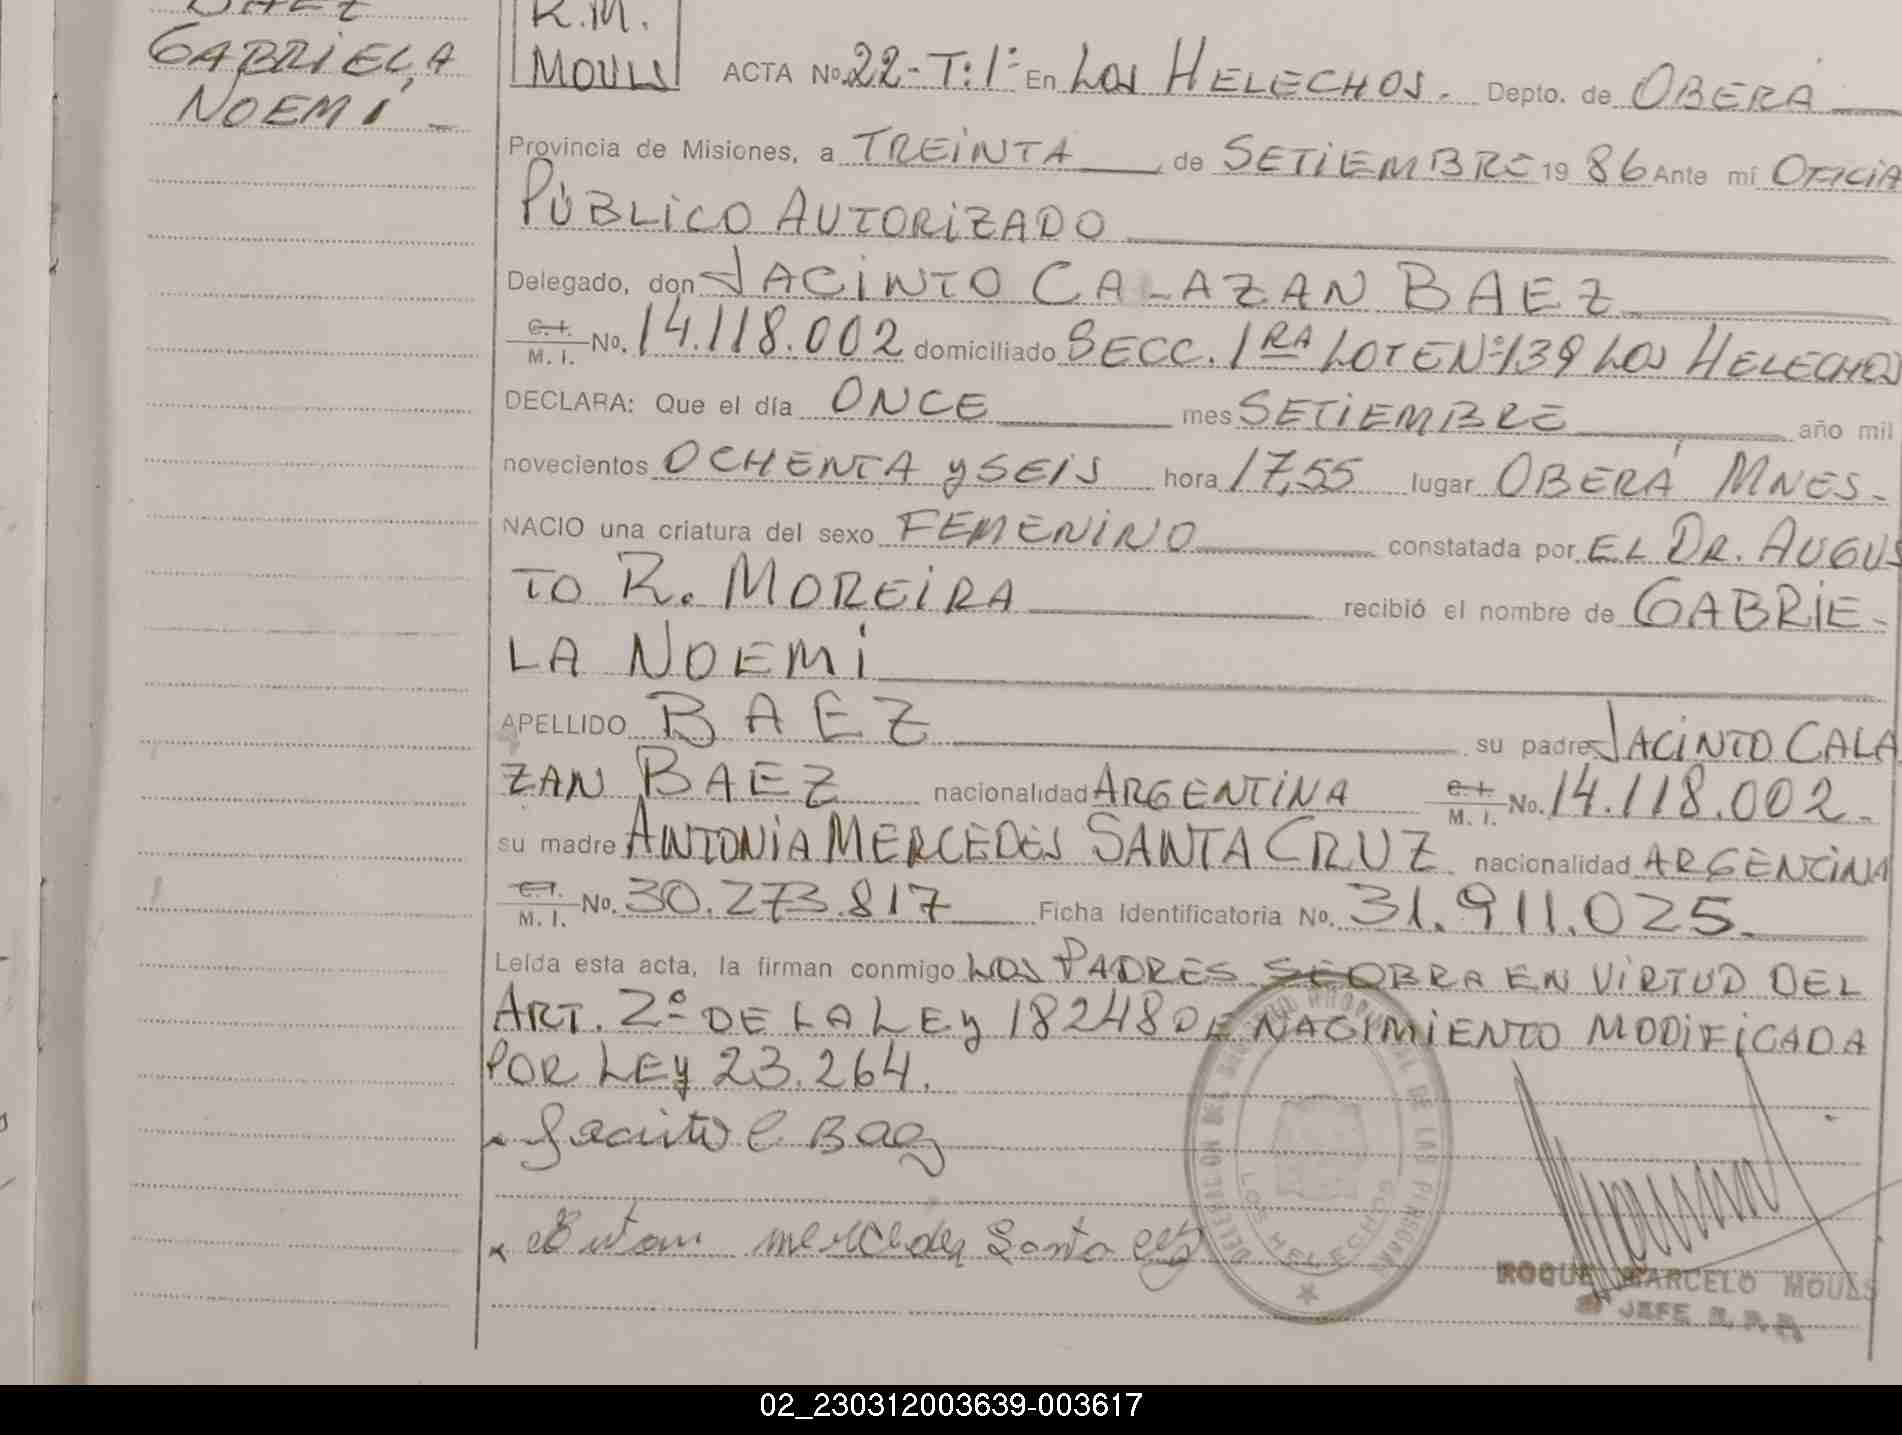 BAEZ
GABRIELA
NOEMI -
R.M.
MOULS
ACTA No. 22- T: 1º En LOS HELECHOS. Depto. de OBERÁ
Provincia de Misiones, a TREINTA de SETIEMBRE 19 86 Ante mí OFICIA
PÚBLICO AUTORIZADO
Delegado, don JACINTO CALAZAN BAEZ
C.I. M.I. No. 14.118.002 domiciliado SECC. 1RA LOTE Nº 139 LOS HELECHOS
DECLARA: Que el día ONCE mes SETIEMBRE año mil
novecientos OCHENTA y SEIS hora 17,55 lugar OBERÁ MNES-
NACIO una criatura del sexo FEMENINO constatada por EL DR. AUGUS
TO R. MOREIRA recibió el nombre de GABRIE-
LA NOEMI
APELLIDO BAEZ su padre JACINTO CALA
ZAN BAEZ nacionalidad ARGENTINA C.I. M.I. No. 14.118.002.-
su madre ANTONIA MERCEDES SANTA CRUZ nacionalidad ARGENTINA
C.I. M.I. No. 30.273.817 Ficha Identificatoria No. 31.911.025.
Leída esta acta, la firman conmigo LOS PADRES SE OBRA EN VIRTUD DEL
ART. 2º DE LA LEY 18248 DE NACIMIENTO MODIFICADA
POR LEY 23.264.
Jacinto C. Baez
mercedes Santa
DELEGACION DEL REGISTRO PROVINCIAL DE LAS PERSONAS
LOS HELECHOS
ROQUE MARCELO MOULS
JEFE R.P.P.
02_230312003639-003617